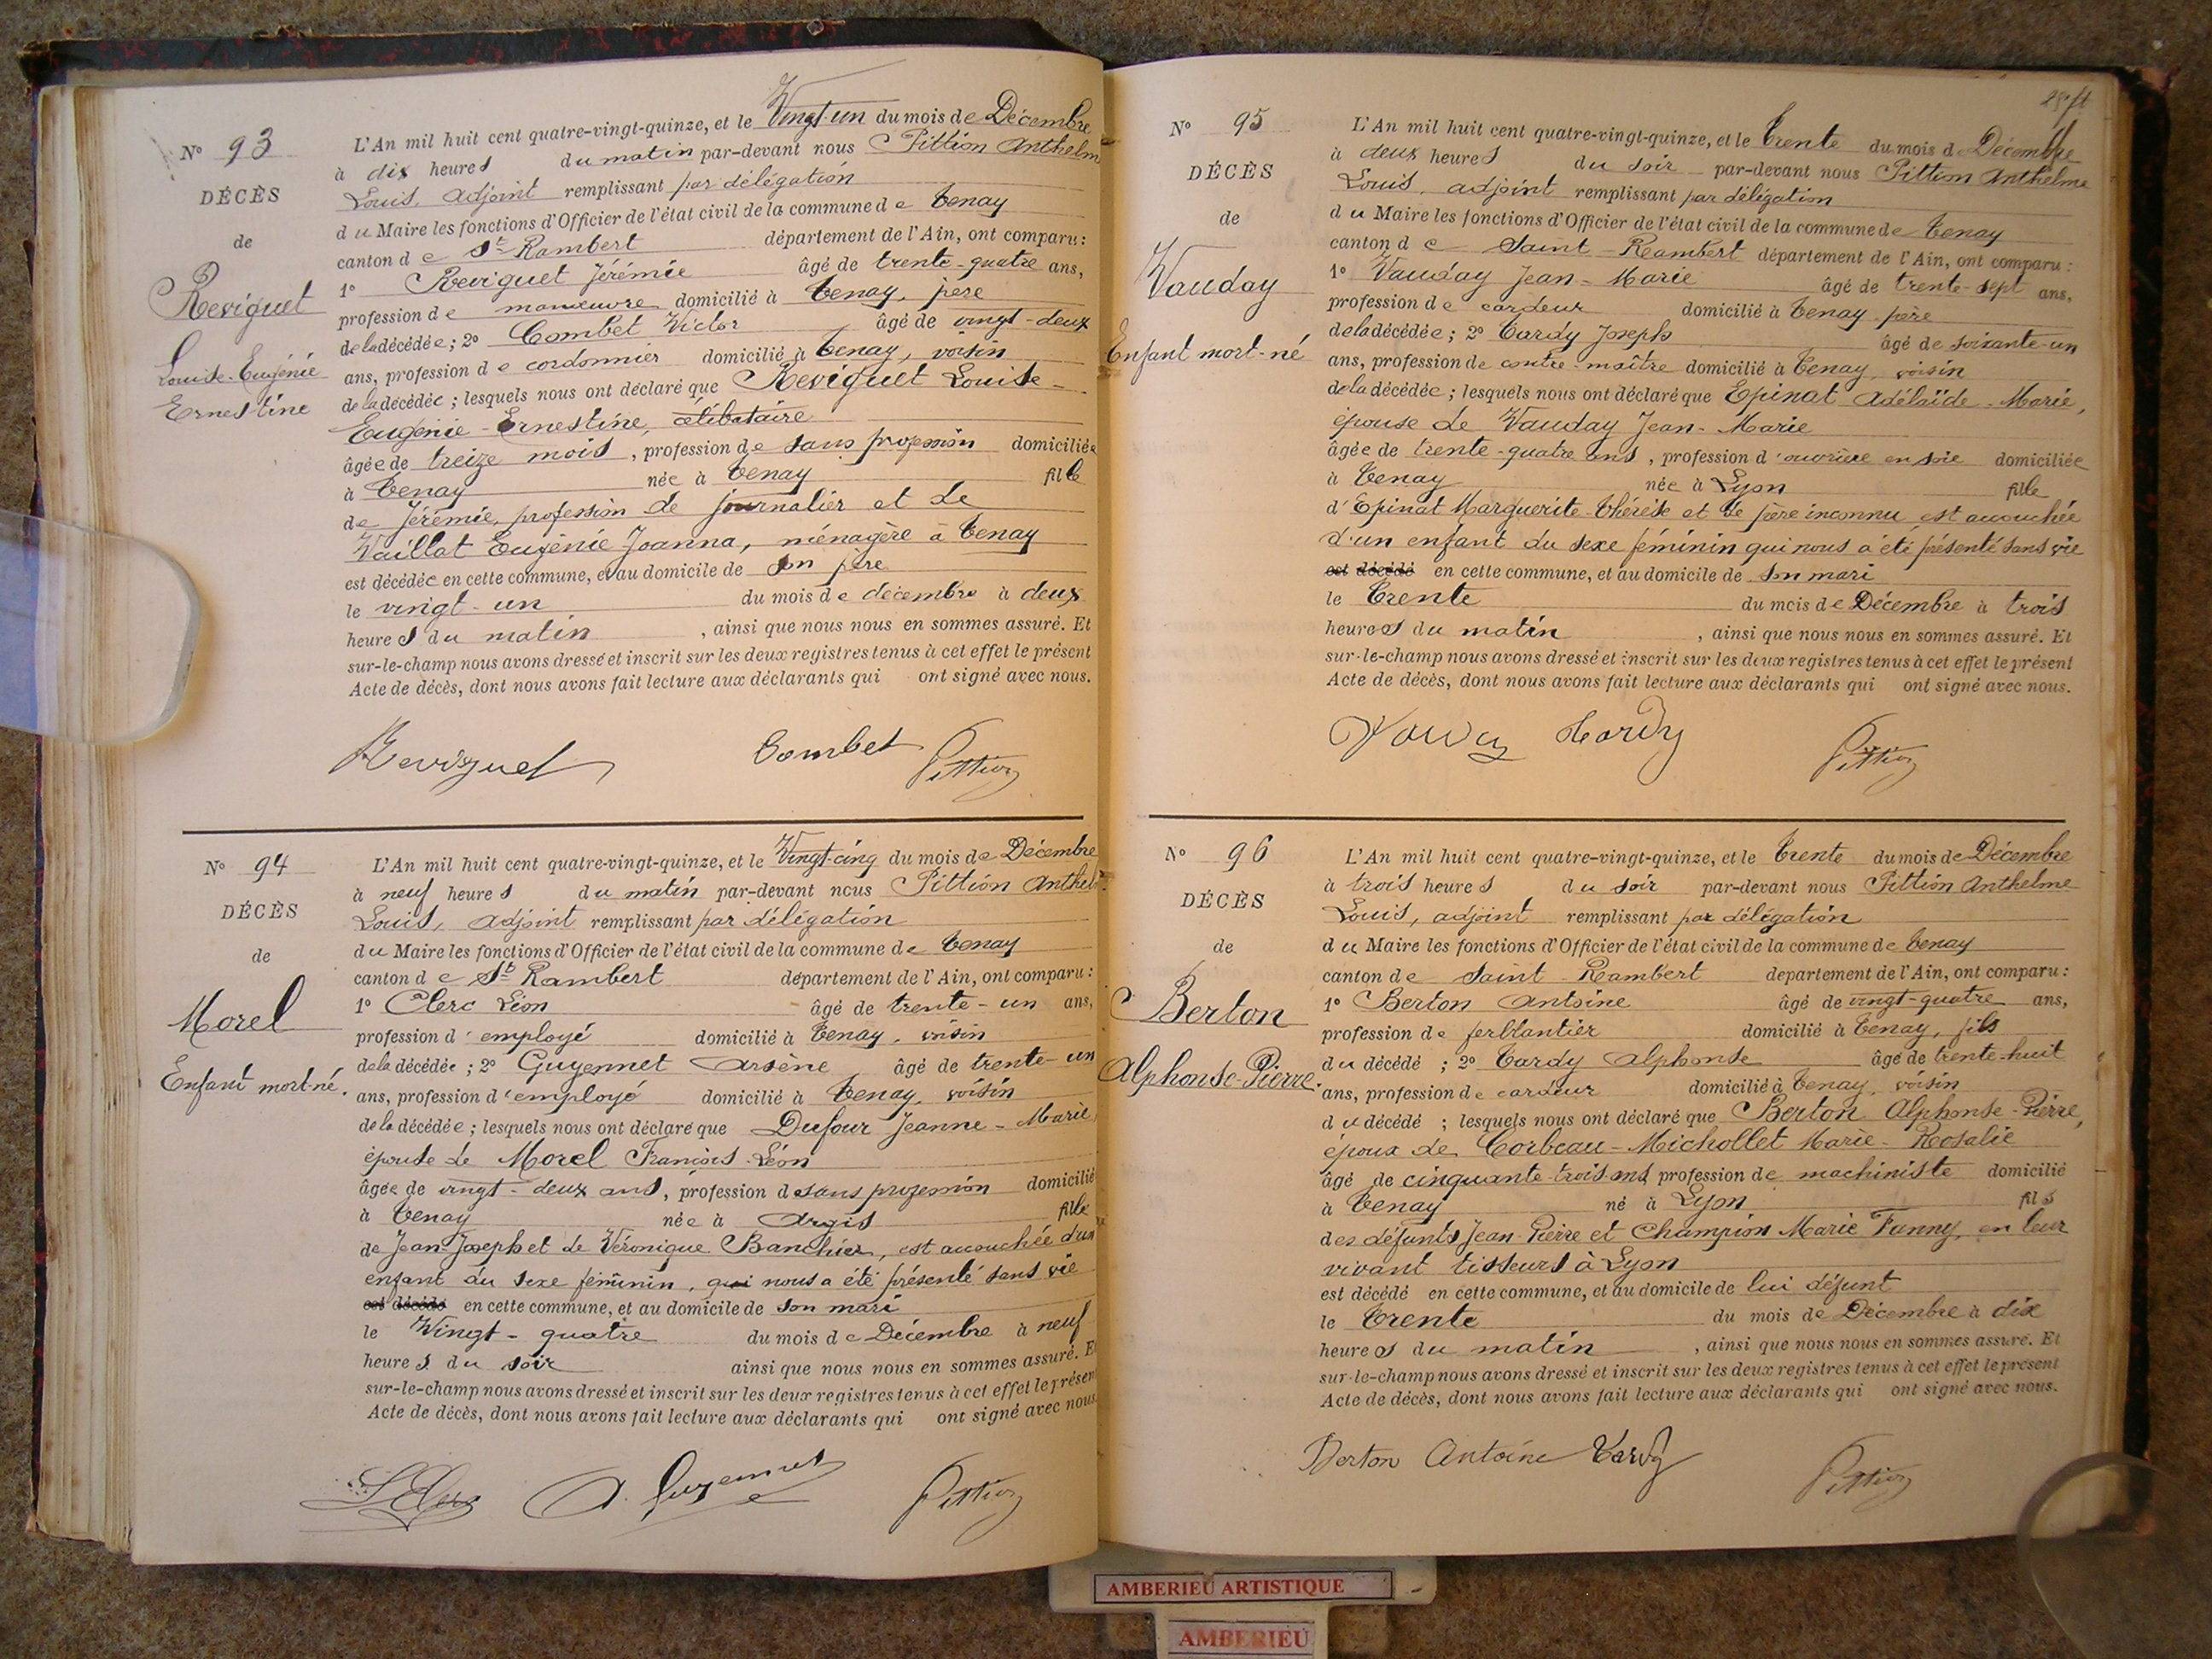 N° 93
DÉCÈS
de
Reviguet
Louise-Eugénie
Ernestine
L'An mil huit cent quatre-vingt-quinze, et le Vingt-un du mois de Décembre
à dix heures du matin par-devant nous Pittion Anthelm
Louis, adjoint remplissant par délégation
du Maire les fonctions d'Officier de l'état civil de la commune de Tenay
canton de St Rambert département de l'Ain, ont comparu:
1° Reviguet Jérémie âgé de trente-quatre ans,
profession de manœuvre domicilié à Tenay, père
de la décédée; 2° Combet Victor âgé de vingt-deux
ans, profession de cordonnier domicilié à Tenay, voisin
de la décédée; lesquels nous ont déclaré que Reviguet Louise-
Eugénie-Ernestine, célibataire
âgée de treize mois, profession de sans profession domiciliée
à Tenay née à Tenay fille
de Jérémie, profession de journalier et de
Vaillat Eugénie Joanna, ménagère à Tenay
est décédée en cette commune, et au domicile de son père
le vingt-un du mois de décembre à deux
heures du matin, ainsi que nous nous en sommes assuré. Et
sur-le-champ nous avons dressé et inscrit sur les deux registres tenus à cet effet le présent
Acte de décès, dont nous avons fait lecture aux déclarants qui ont signé avec nous.
Reviguet Combet Pittion
N° 94
DÉCÈS
de
Morel
Enfant mort-né.
L'An mil huit cent quatre-vingt-quinze, et le Vingt-cinq du mois de Décembre
à neuf heures du matin par-devant nous Pittion Anthel
Louis, adjoint remplissant par délégation
du Maire les fonctions d'Officier de l'état civil de la commune de Tenay
canton de St Rambert département de l'Ain, ont comparu:
1° Clerc Léon âgé de trente-un ans,
profession d'employé domicilié à Tenay, voisin
de la décédée; 2° Guyennet Arsène âgé de trente-un
ans, profession d'employé domicilié à Tenay, voisin
de la décédée; lesquels nous ont déclaré que Dufour Jeanne-Marie
épouse de Morel François-Léon
âgée de vingt-deux ans, profession de sans profession domicilié
à Tenay née à Argis fille
de Jean-Joseph et de Véronique Banchier, est accouchée d'un
enfant du sexe féminin, qui nous a été présenté sans vie
est décédé en cette commune, et au domicile de son mari
le Vingt-quatre du mois de Décembre à neuf
heures du soir ainsi que nous nous en sommes assuré. E
sur-le-champ nous avons dressé et inscrit sur les deux registres tenus à cet effet le présen
Acte de décès, dont nous avons fait lecture aux déclarants qui ont signé avec nous
A. Guyennet Pittion
N° 95
DÉCÈS
de
Vauday
Enfant mort-né
L'An mil huit cent quatre-vingt-quinze, et le Trente du mois de Décembre
à deux heures du soir par-devant nous Pittion Anthelme
Louis, adjoint remplissant par délégation
du Maire les fonctions d'Officier de l'état civil de la commune de Tenay
canton de Saint-Rambert département de l'Ain, ont comparu:
1° Vauday Jean-Marie âgé de trente-sept ans,
profession de cardeur domicilié à Tenay père
de la décédée; 2° Tardy Joseph âgé de soixante-un
ans, profession de contre-maître domicilié à Tenay, voisin
de la décédée; lesquels nous ont déclaré que Epinat Adélaïde-Marie,
épouse de Vauday Jean-Marie
âgée de trente-quatre ans, profession d'ouvrière en soie domiciliée
à Tenay née à Lyon fille
d'Epinat Marguerite-Thérèse et de père inconnu, est accouchée
d'un enfant du sexe féminin qui nous a été présenté sans vie
est décédé en cette commune, et au domicile de son mari
le Trente du mois de Décembre à trois
heures du matin, ainsi que nous nous en sommes assuré. Et
sur-le-champ nous avons dressé et inscrit sur les deux registres tenus à cet effet le présent
Acte de décès, dont nous avons fait lecture aux déclarants qui ont signé avec nous.
Tardy Pittion
N° 96
DÉCÈS
de
Berton
Alphonse-Pierre.
L'An mil huit cent quatre-vingt-quinze, et le Trente du mois de Décembre
à trois heures du soir par-devant nous Pittion Anthelme
Louis, adjoint remplissant par délégation
du Maire les fonctions d'Officier de l'état civil de la commune de Tenay
canton de Saint-Rambert département de l'Ain, ont comparu:
1° Berton Antoine âgé de vingt-quatre ans,
profession de ferblantier domicilié à Tenay, fils
du décédé; 2° Tardy Alphonse âgé de trente-huit
ans, profession de cardeur domicilié à Tenay, voisin
du décédé; lesquels nous ont déclaré que Berton Alphonse-Pierre,
époux de Corbeau-Michollet Marie-Rosalie
âgé de cinquante-trois ans, profession de machiniste domicilié
à Tenay né à Lyon fils
des défunts Jean-Pierre et Champion Marie Fanny, en leur
vivant tisseurs à Lyon
est décédé en cette commune, et au domicile de lui défunt
le Trente du mois de Décembre à dix
heures du matin, ainsi que nous nous en sommes assuré. Et
sur-le-champ nous avons dressé et inscrit sur les deux registres tenus à cet effet le présent
Acte de décès, dont nous avons fait lecture aux déclarants qui ont signé avec nous.
Berton Antoine Tardy Pittion
AMBERIEU ARTISTIQUE
AMBERIEU